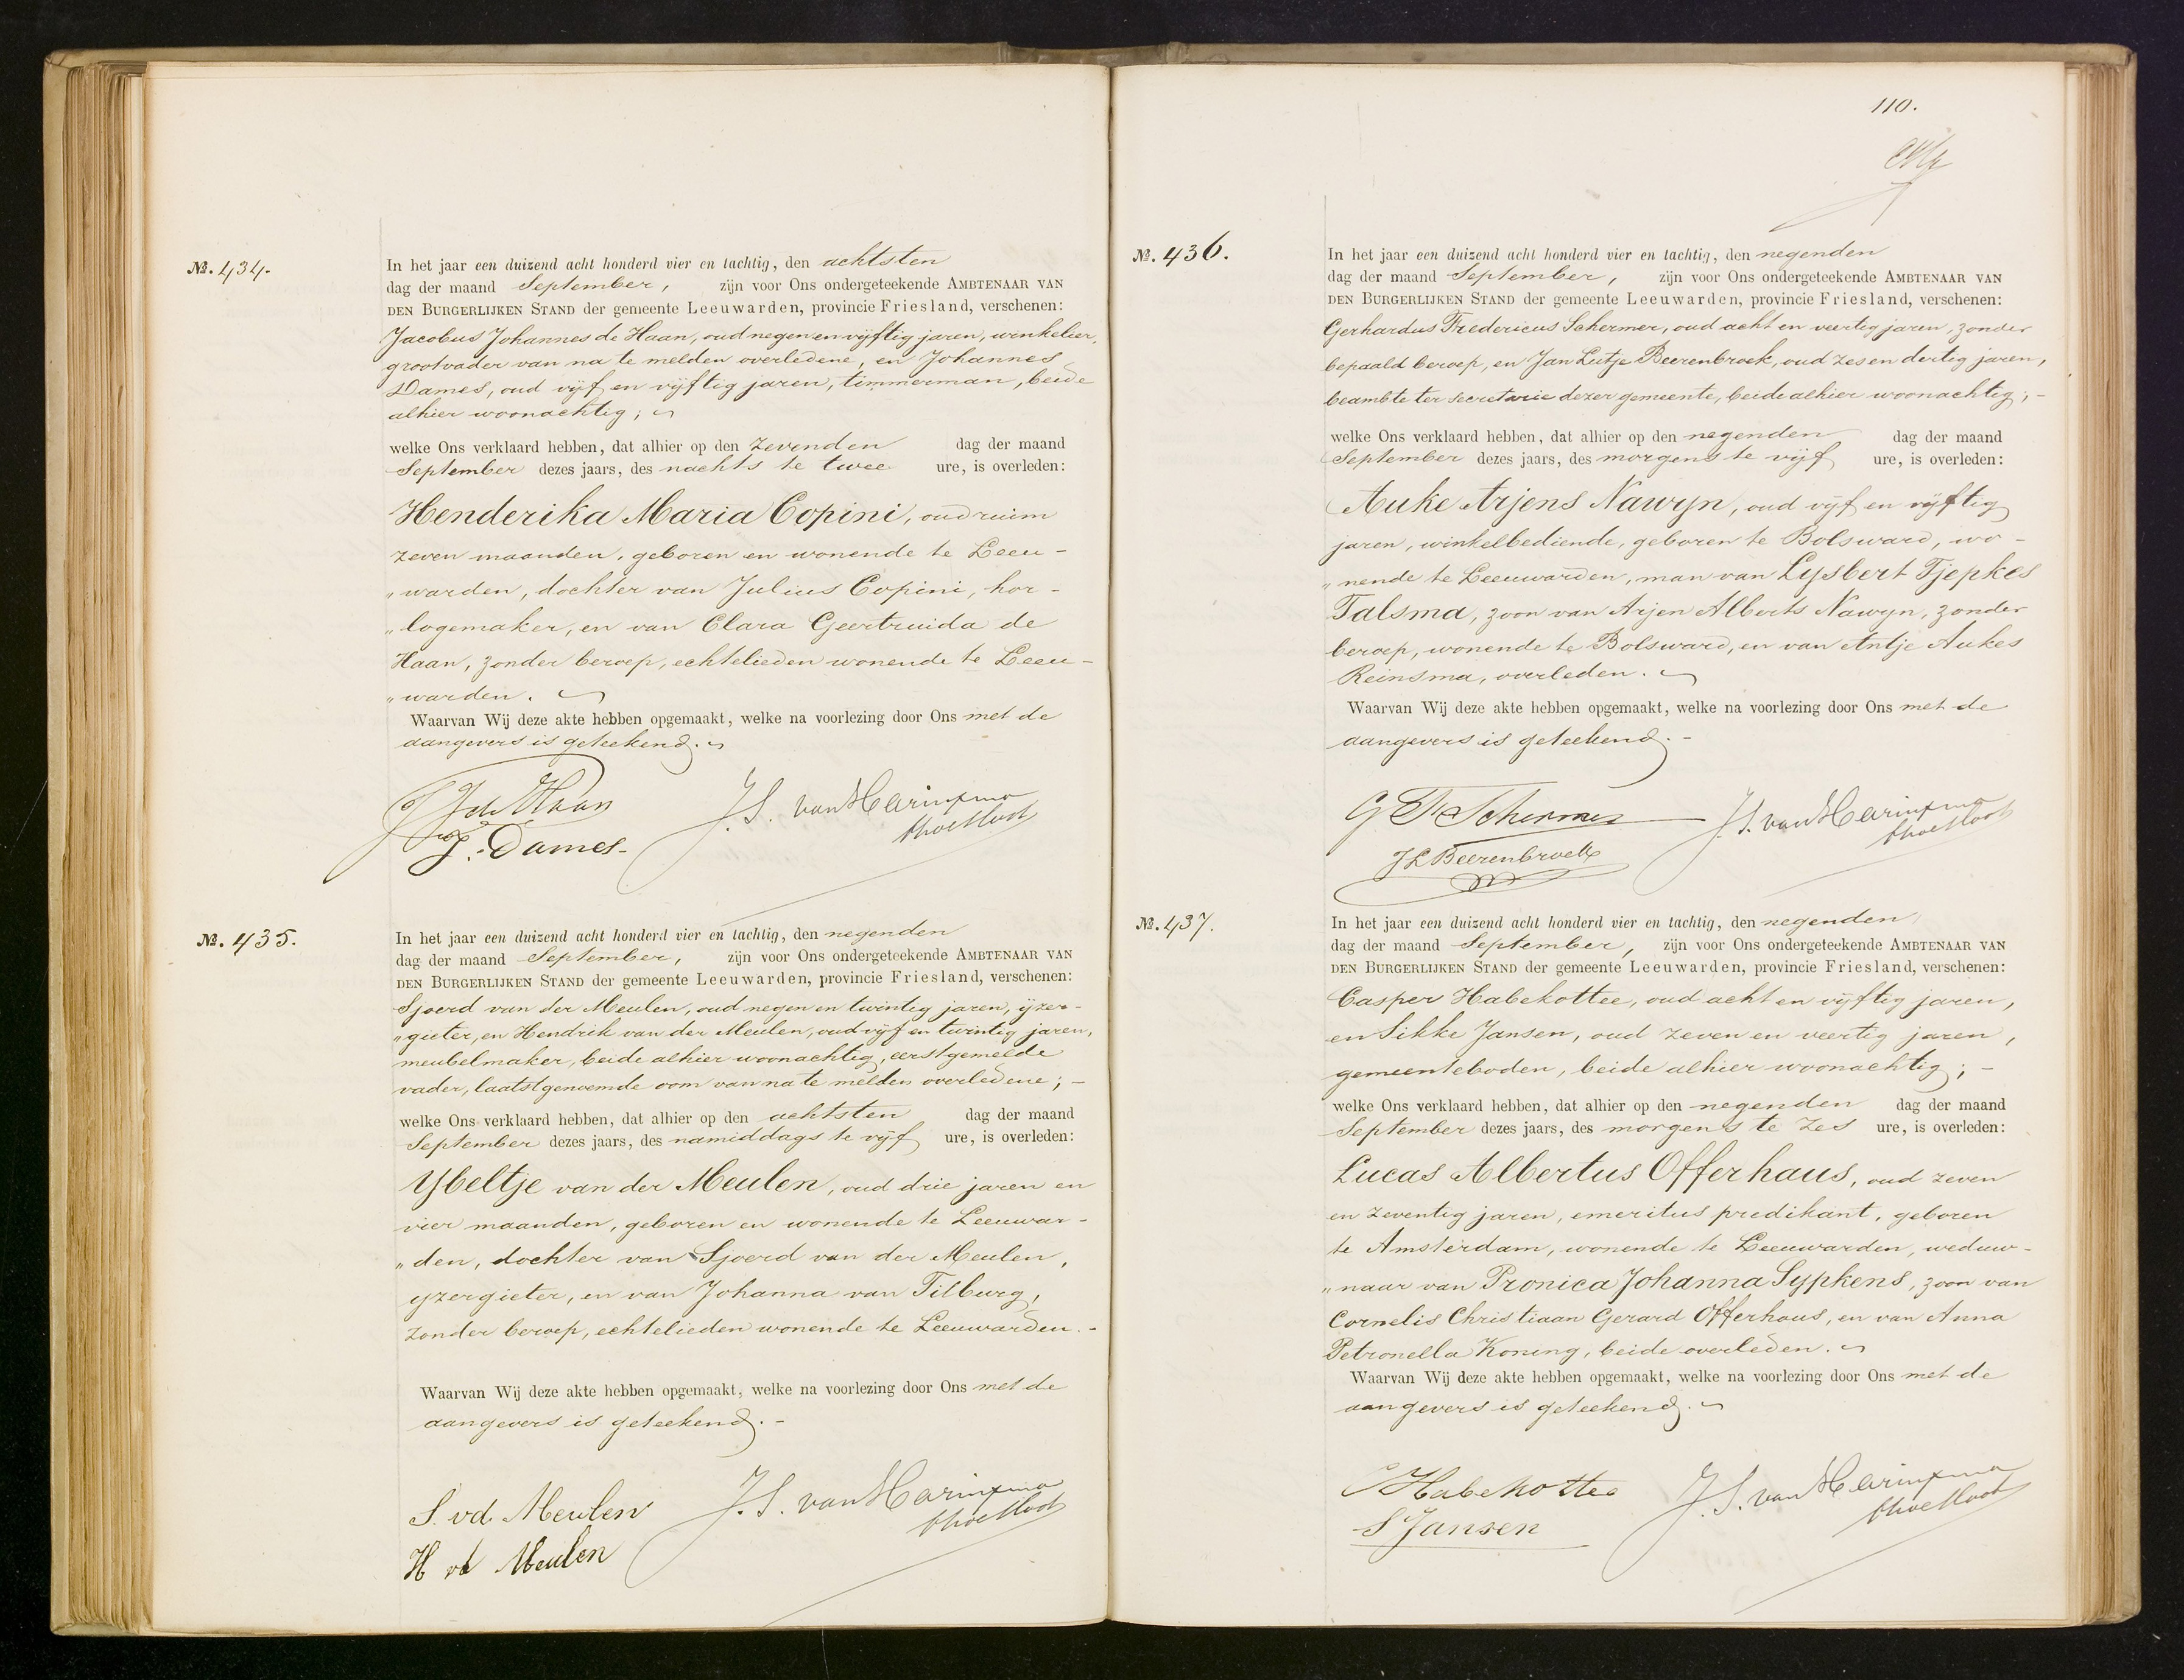 №. 434.
In het jaar een duizend acht honderd vier en tachtig, den achtsten
dag der maand September, zijn voor Ons ondergeteekende AMBTENAAR VAN
DEN BURGERLIJKEN STAND der gemeente Leeuwarden, provincie Friesland, verschenen:
Jacobus Johannes de Haan, oud negen en vijftig jaren, winkelier,
grootvader van na te melden overledene, en Johannes
Dames, oud vijf en vijftig jaren, timmerman, beide
alhier woonachtig;
welke Ons verklaard hebben, dat alhier op den zevenden dag der maand
September dezes jaars, des nachts te twee ure, is overleden:
Henderika Maria Copini, oud ruim
zeven maanden, geboren en wonende te Leeu-
„warden, dochter van Julius Copini, hor-
„logemaker, en van Clara Geertruida de
Haan, zonder beroep, echtelieden wonende te Leeu-
„warden.
Waarvan Wij deze akte hebben opgemaakt, welke na voorlezing door Ons met de
aangevers is geteekend.
J J de Haan
J. Dames.
J. S. van Harinxma
thoe Sloot
№. 435.
In het jaar een duizend acht honderd vier en tachtig, den negenden
dag der maand September, zijn voor Ons ondergeteekende AMBTENAAR VAN
DEN BURGERLIJKEN STAND der gemeente Leeuwarden, provincie Friesland, verschenen:
Sjoerd van der Meulen, oud negen en twintig jaren, ijzer-
„gieter, en Hendrik van der Meulen, oud vijf en twintig jaren,
meubelmaker, beide alhier woonachtig, eerstgemelde
vader, laatstgenoemde oom van na te melden overledene; -
welke Ons verklaard hebben, dat alhier op den achtsten dag der maand
September dezes jaars, des namiddags te vijf ure, is overleden:
Ybeltje van der Meulen, oud drie jaren en
vier maanden, geboren en wonende te Leeuwar-
„den, dochter van Sjoerd van der Meulen,
yzergieter, en van Johanna van Tilburg,
zonder beroep, echtelieden wonende te Leeuwarden. -
Waarvan Wij deze akte hebben opgemaakt, welke na voorlezing door Ons met de
aangevers is geteekend. -
S. vd. Meulen
H vd Meulen
J. S. van Harinxma
thoe Sloot
110.
№. 436.
In het jaar een duizend acht honderd vier en tachtig, den negenden
dag der maand September, zijn voor Ons ondergeteekende AMBTENAAR VAN
DEN BURGERLIJKEN STAND der gemeente Leeuwarden, provincie Friesland, verschenen:
Gerhardus Fredericus Schermer, oud acht en veertig jaren, zonder
bepaald beroep, en Jan Lutje Beerenbroek, oud zes en dertig jaren,
beambte ter secretarie dezer gemeente, beide alhier woonachtig; -
welke Ons verklaard hebben, dat alhier op den negenden dag der maand
September dezes jaars, des morgens te vijf ure, is overleden:
Auke Arjens Nawyn, oud vijf en vijftig
jaren, winkelbediende, geboren te Bolsward, wo-
„nende te Leeuwarden, man van Lysbert Tjepkes
Talsma, zoon van Arjen Alberts Nawyn, zonder
beroep, wonende te Bolsward, en van Antje Aukes
Reinsma, overleden.
Waarvan Wij deze akte hebben opgemaakt, welke na voorlezing door Ons met de
aangevers is geteekend. -
G F Schermer
J L Beerenbroek
J. S. van Harinxma
thoe Sloot
№. 437.
In het jaar een duizend acht honderd vier en tachtig, den negenden
dag der maand September, zijn voor Ons ondergeteekende AMBTENAAR VAN
DEN BURGERLIJKEN STAND der gemeente Leeuwarden, provincie Friesland, verschenen:
Casper Habekottee, oud acht en vijftig jaren,
en Sikke Jansen, oud zeven en veertig jaren,
gemeenteboden, beide alhier woonachtig; -
welke Ons verklaard hebben, dat alhier op den negenden dag der maand
September dezes jaars, des morgens te zes ure, is overleden:
Lucas Albertus Offerhaus, oud zeven
en zeventig jaren, emeritus predikant, geboren
te Amsterdam, wonende te Leeuwarden, weduw-
„naar van Pronica Johanna Sypkens, zoon van
Cornelis Christiaan Gerard Offerhaus, en van Anna
Petronella Koning, beide overleden.
Waarvan Wij deze akte hebben opgemaakt, welke na voorlezing door Ons met de
aangevers is geteekend.
C Habekottee
S Jansen
J. S. van Harinxma
thoe Sloot